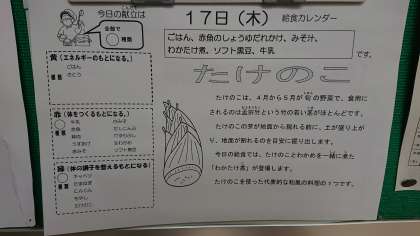 今日の献立は
全部で
種類
17日(木) 給食カレンダー
ごはん、赤魚のしょうゆだれかけ、みそ汁、
わかたけ煮、ソフト黒豆、牛乳
です。
たけのこ
黄(エネルギーのもとになる。)
ごはん
さとう
種類
赤(体をつくるもとになる。)
牛乳
赤魚
種類
ソフト黒豆
緑(体の調子を整えるもとになる)
キャベツ
たまねぎ
にんじん
もやし
たけのこ
種類
たけのこは、4月から5月が旬の野菜で、食用に
されるのは孟宗竹という竹の若い茎がほとんどです。
たけのこの芽が地面から現れる前に、土が盛り上が
り、地面が割れるのを目安に掘り出します。
今日の給食では、たけのことわかめを一緒に煮た
「わかたけ煮」が登場します。
たけのこを使った代表的な和風の料理の1つです。